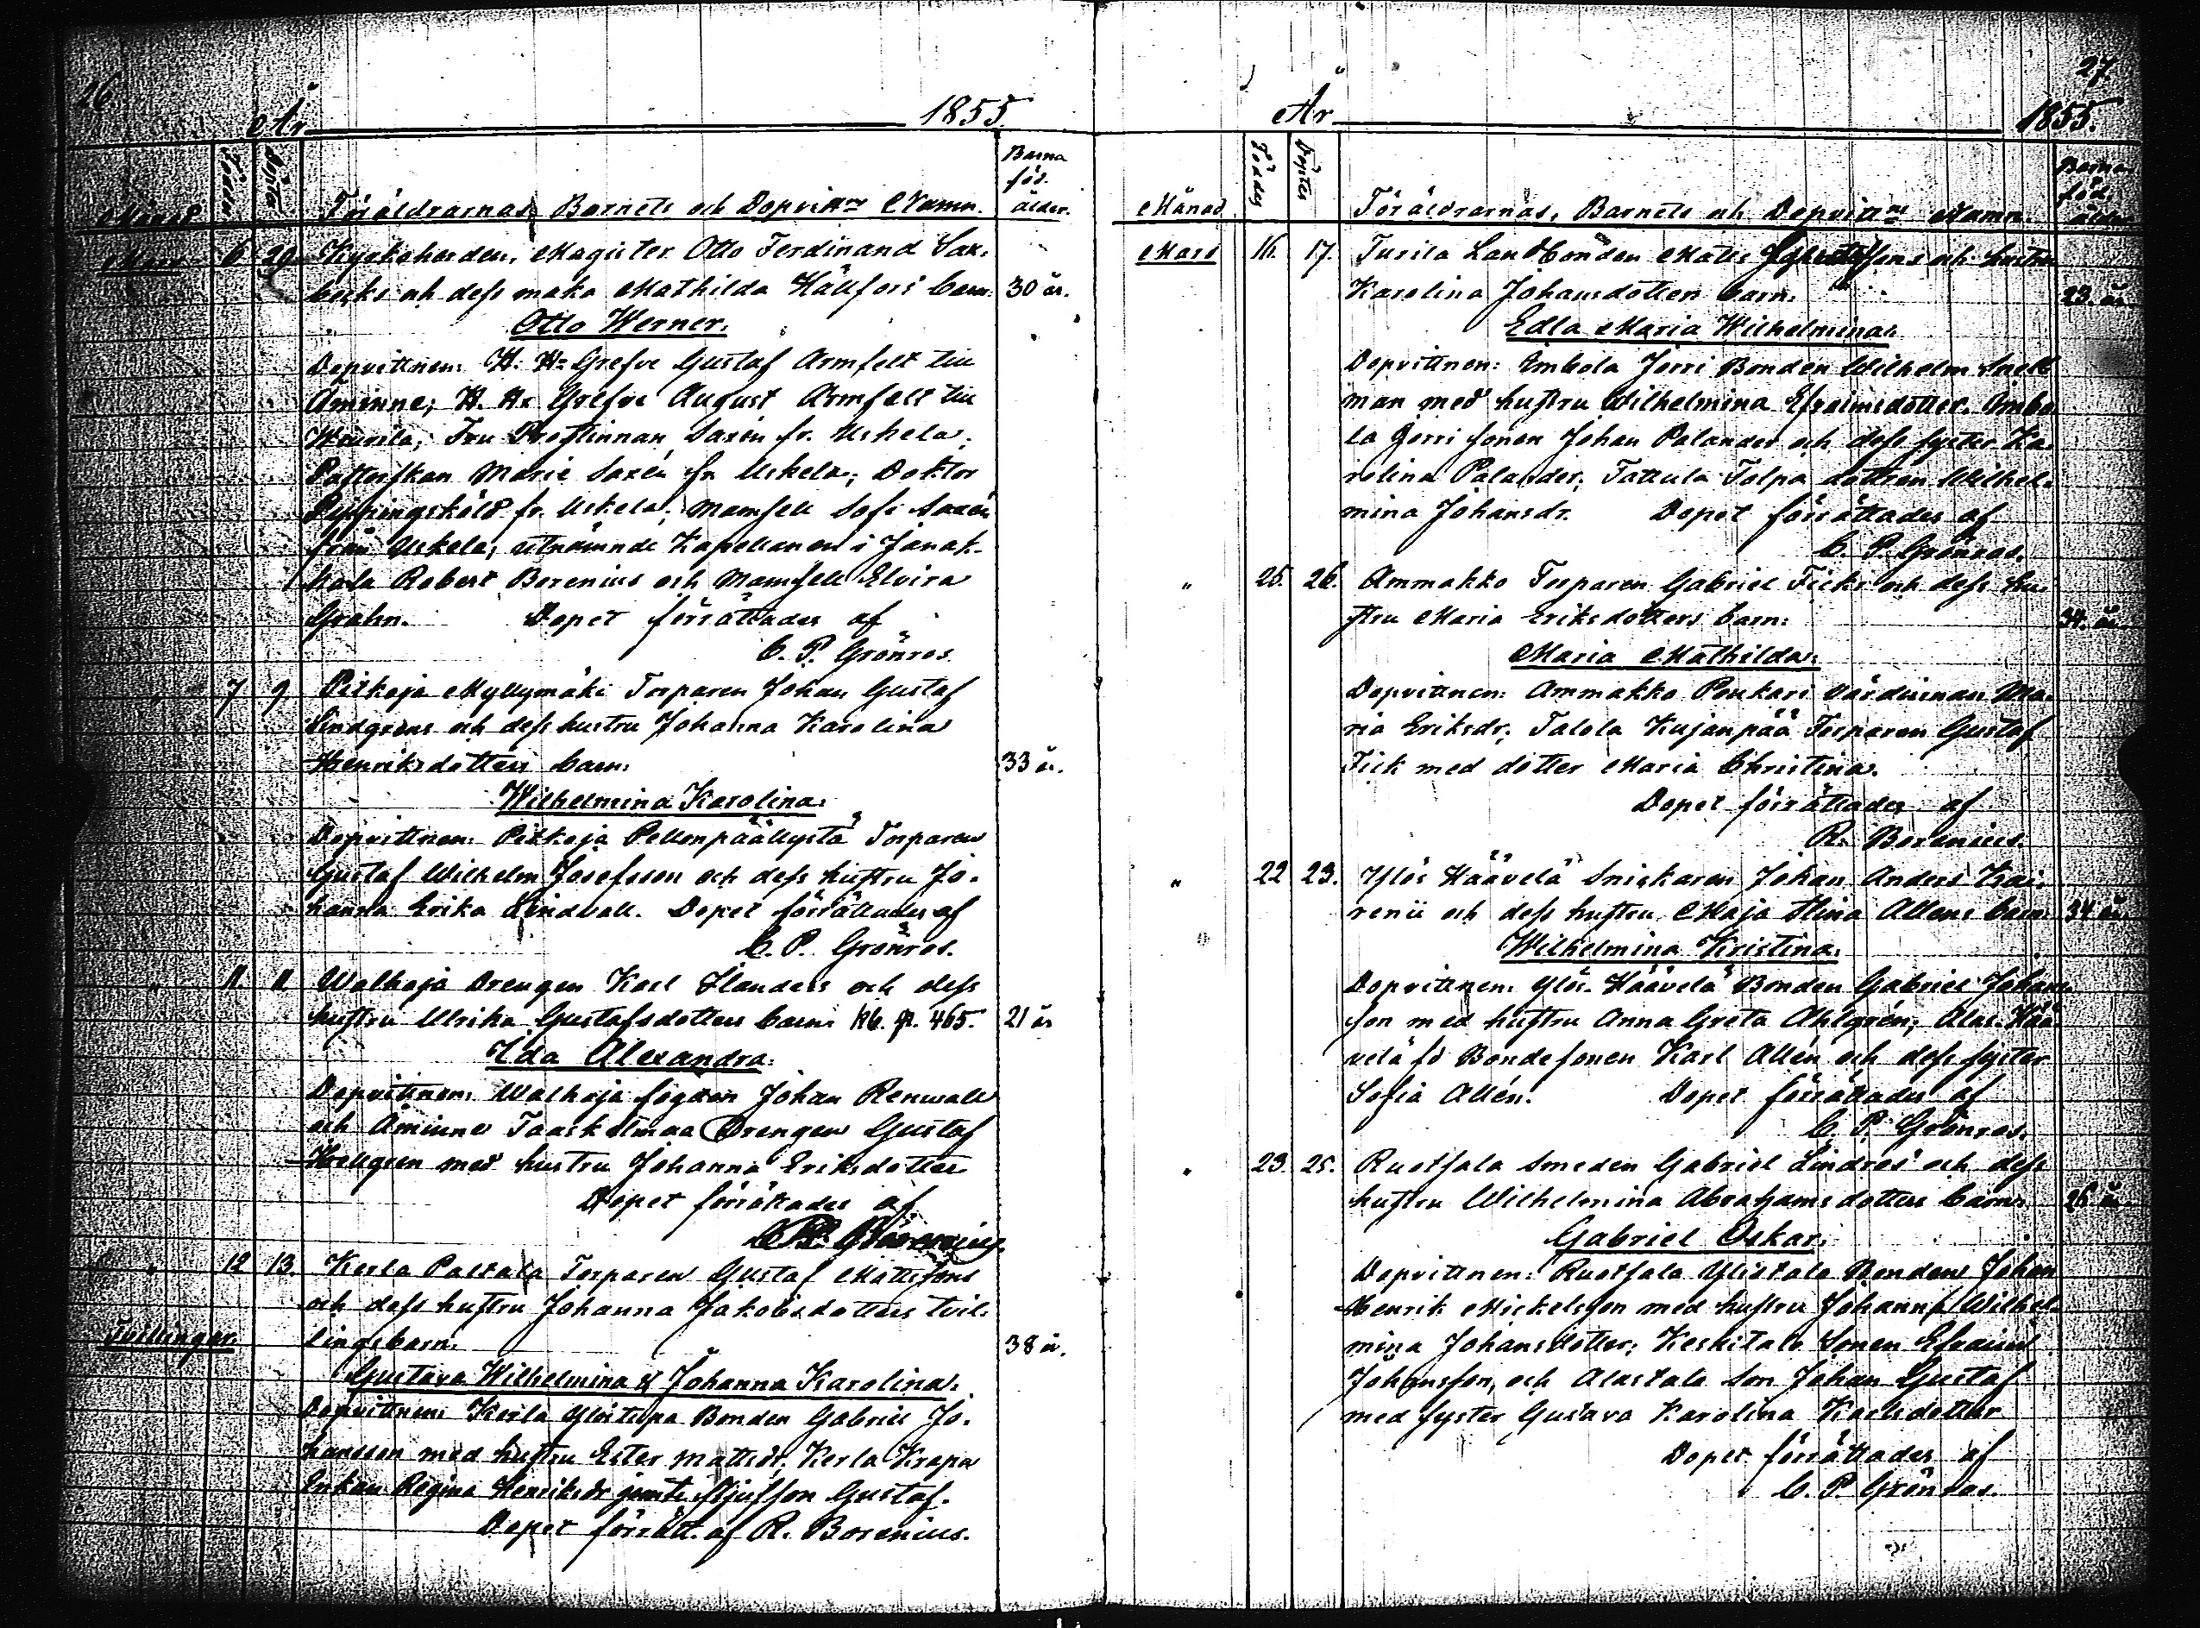 26
År 1855.
Månad Födde Döpte Föräldrarnas, Barnets och Dopvittn:s Namn. Barna föd. ålder.
Mars 6 29 Kyrkoherden, Magister Otto Ferdinand Sax-
becks och dess maka Mathilda Hällfors' barn: 30 år.
Otto Werner.
Dopvittnen: H. Hr Grefve Gustaf Armfelt till
Åminne; H. Hr Grefve August Armfelt till
Wiurila; Fru Prostinnan Saxén fr. Uskela;
Pastorskan Marie Saxén fr Uskela; Doktor
Pippingsköld fr. Uskela; Mamsell Sofi Saxén
från Uskela; utnämnde Kapellanen i Janak-
kala Robert Borenius och Mamsell Elvira
Grahn. Dopet förrättades af
C. P. Grönros.
" 7 9 Pitkoja Myllymäki Torparen Johan Gustaf
Lindgrens och dess hustru Johanna Karolina
Henriksdotters barn: 33 år.
Wilhelmina Karolina.
Dopvittnen: Pitkoja Pellonpäällystä Torparen
Gustaf Wilhelm Josefsson och dess hustru Jo-
hanna Erika Lindvall. Dopet förrättades af
C. P. Grönros.
" 11 11 Walhoja Drengen Karl Flanders och dess
hustru Ulrika Gustafsdotters barn: Kb. p. 465. 21 år
Ida Alexandra.
Dopvittnen: Walhoja fogden Johan Renwall
och Åminne Taaskulmaa Drengen Gustaf
Hellgren med hustru Johanna Eriksdotter
Dopet förrättades af
" 12 13. Kerla Paltala Torparen Gustaf Mattssons
och dess hustru Johanna Jakobsdotters tvil-
Tvillingar. lingsbarn: 38 år.
Gustava Wilhelmina & Johanna Karolina.
Dopvittnen: Kerla Ylöstupa Bonden Gabriel Jo-
hansson med hustru Ester Mattsdr. Kerla Krapu
Enkan Regina Henriksdr jemte Styfson Gustaf.
Dopet förrätt. af R. Borenius.
27
År 1855.
Månad Föddes Döptes Föräldrarnas, Barnets och Dopvittns Namn. Barna föd. ålder.
Mars 16. 17. Turila Landtbonden Matts och hustru
Karolina Johansdotters barn: 23. år
Edla Maria Wilhelmina.
Dopvittnen: Immola Jorri Bonden Wilhelm Snell-
man med hustru Wilhelmina Efraimsdotter. Immo-
la Jorri sonen Johan Palander och dess syster Ka-
rolina Palander, Tattula Tolpa dottren Wilhel-
mina Johansdr. Dopet förrättades af
C. P. Grönros.
" 25. 26. Ammakko Torparen Gabriel Ficks och dess hu-
stru Maria Eriksdotters barn: 34. år
Maria Mathilda.
Dopvittnen: Ammakko Poukari värdinnan Ma-
ria Eriksdr; Talola Kujanpää Torparen Gustaf
Fick med dotter Maria Christina.
Dopet förrättades af
R. Borenius.
" 22 23. Ylös Häävelä Snickaren Johan Anders Kai-
renii och dess hustru Maja Stina Alléns barn: 34 år
Wilhelmina Kristina.
Dopvittnen: Ylös-Häävelä Bonden Gabriel Johans-
son med hustru Anna Greta Ahlgrén; Alas-Hää-
velä fd Bondesonen Karl Allén och dess syster
Sofia Allén. Dopet förrättades af
C. P. Grönros.
" 23. 25. Ruotsala Smeden Gabriel Lindros' och dess
hustru Wilhelmina Abrahamsdotters barn: 26 år
Gabriel Oskar.
Dopvittnen: Ruotsala Ylistalo Bonden Johan
Henrik Mickelsson med hustru Johanna Wilhel-
mina Johansdotter; Keskitalo Sonen Efraim
Johansson, och Alastalo Son Johan Gustaf
med syster Gustava Karolina Karlsdotter
Dopet förrättades af
C. P. Grönros.